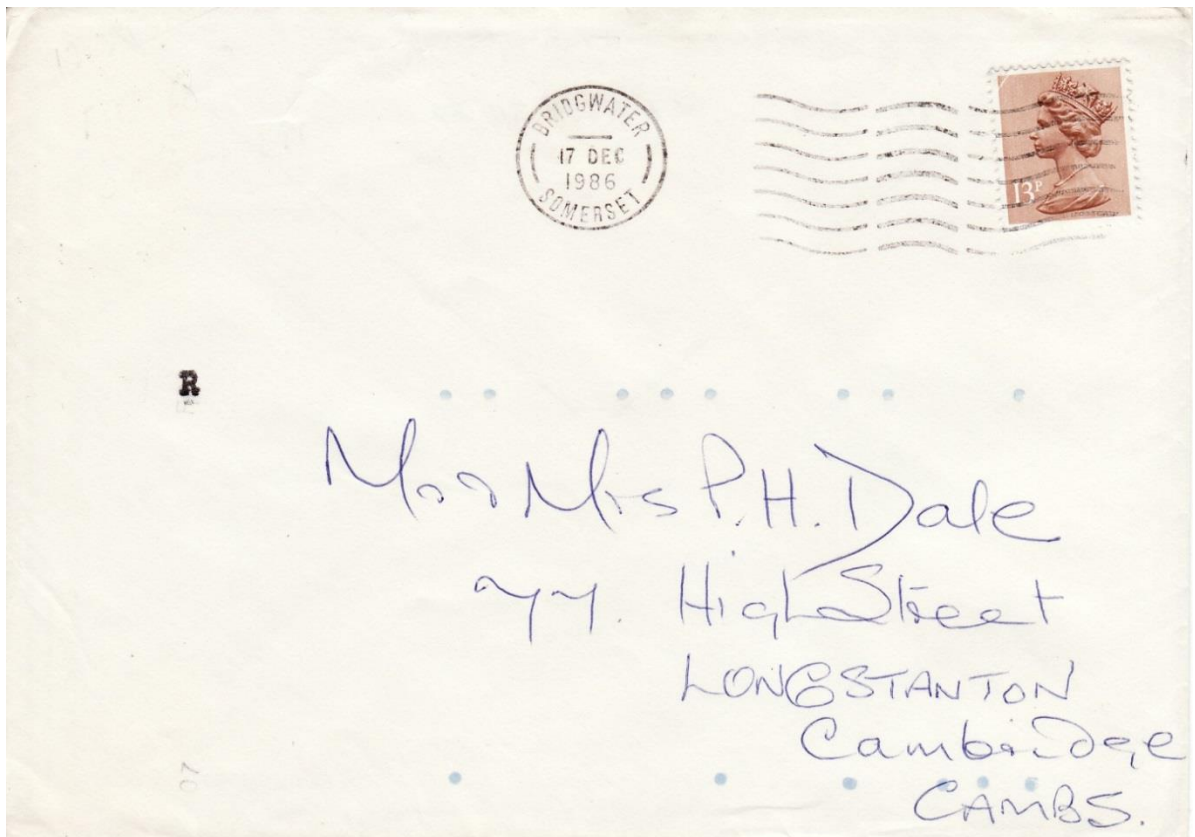 BRIDGWATER
17 DEC
1986
SOMERSET
13P
R
Mr & Mrs P.H. Dale
77. High Street
LONGSTANTON
Cambridge
CAMBS.
07